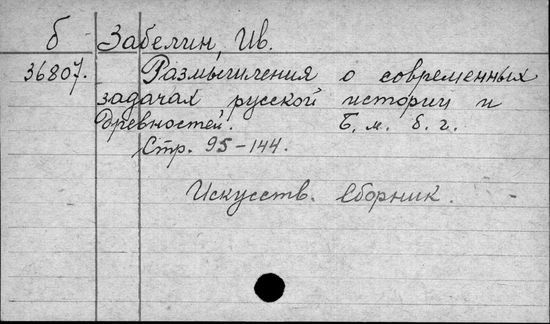 б Забелин, Ив.
36807. Размышления о современных
задачах русской истории и
древностей. Б. м. б. г.
Стр. 95-144.
Искусств. Сборник.